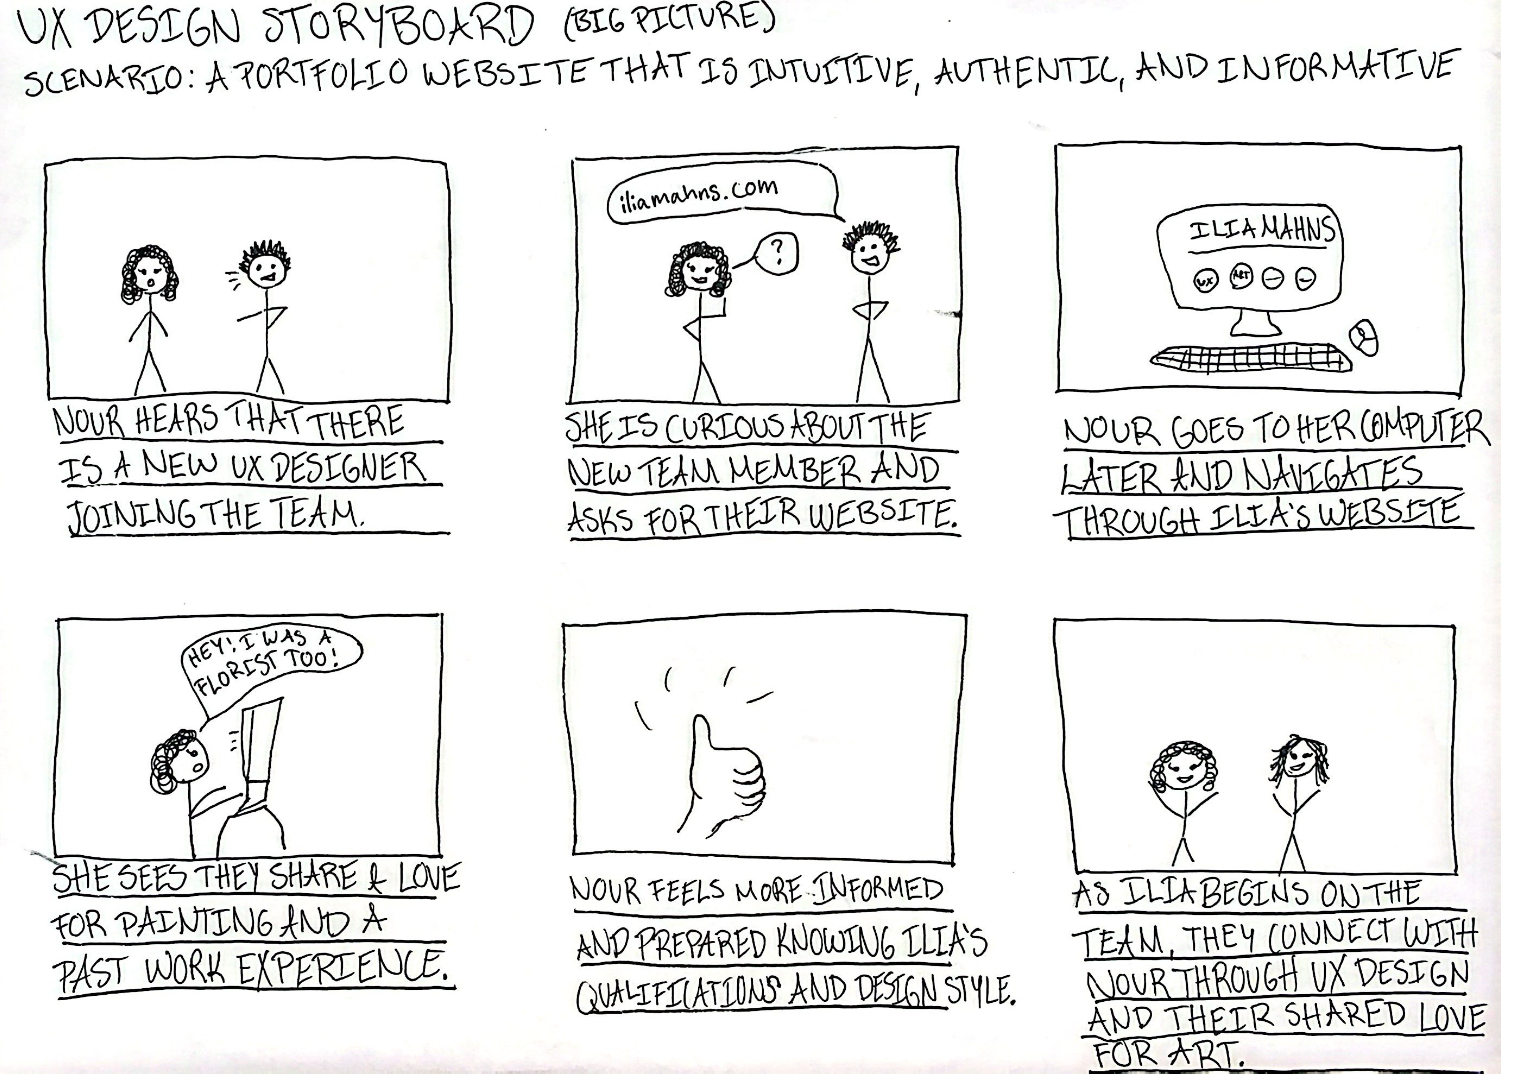 UX DESIGN STORYBOARD (BIG PICTURE)
SCENARIO: A PORTFOLIO WEBSITE THAT IS INTUITIVE, AUTHENTIC, AND INFORMATIVE
NOUR HEARS THAT THERE
IS A NEW UX DESIGNER
JOINING THE TEAM.
iliamahns.com
?
SHE IS CURIOUS ABOUT THE
NEW TEAM MEMBER AND
ASKS FOR THEIR WEBSITE.
ILIA MAHNS
UX ART
NOUR GOES TO HER COMPUTER
LATER AND NAVIGATES
THROUGH ILIA'S WEBSITE
HEY! I WAS A
FLORIST TOO!
SHE SEES THEY SHARE A LOVE
FOR PAINTING AND A
PAST WORK EXPERIENCE.
NOUR FEELS MORE INFORMED
AND PREPARED KNOWING ILIA'S
QUALIFICATIONS AND DESIGN STYLE.
AS ILIA BEGINS ON THE
TEAM, THEY CONNECT WITH
NOUR THROUGH UX DESIGN
AND THEIR SHARED LOVE
FOR ART.